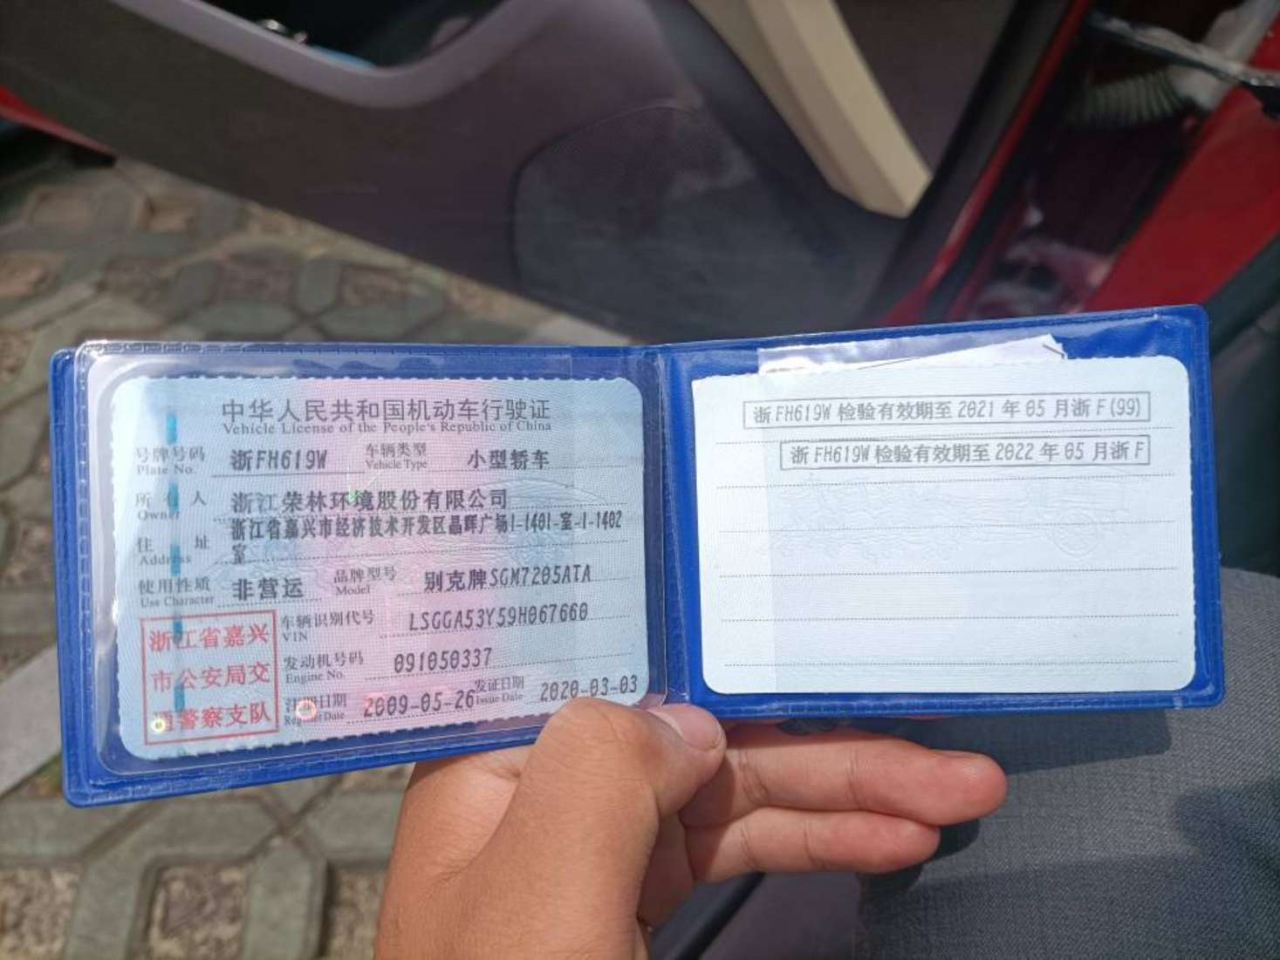 中华人民共和国机动车行驶证
Vehicle License of the People's Republic of China
号牌号码 浙FH619W 车辆类型 小型轿车
Plate No. Vehicle Type
所有人 浙江荣林环境股份有限公司
Owner
住址 浙江省嘉兴市经济技术开发区晶晖广场1-1401-室-1-1402
Address 室
使用性质 非营运 品牌型号 别克牌SGM7205ATA
Use Character Model
浙江省嘉兴
市公安局交
通警察支队
车辆识别代号 LSGGA53Y59H067660
VIN
发动机号码 091050337
Engine No.
注册日期 2009-05-26 发证日期 2020-03-03
Register Date Issue Date
浙FH619W检验有效期至2021年05月浙F(99)
浙FH619W检验有效期至2022年05月浙F